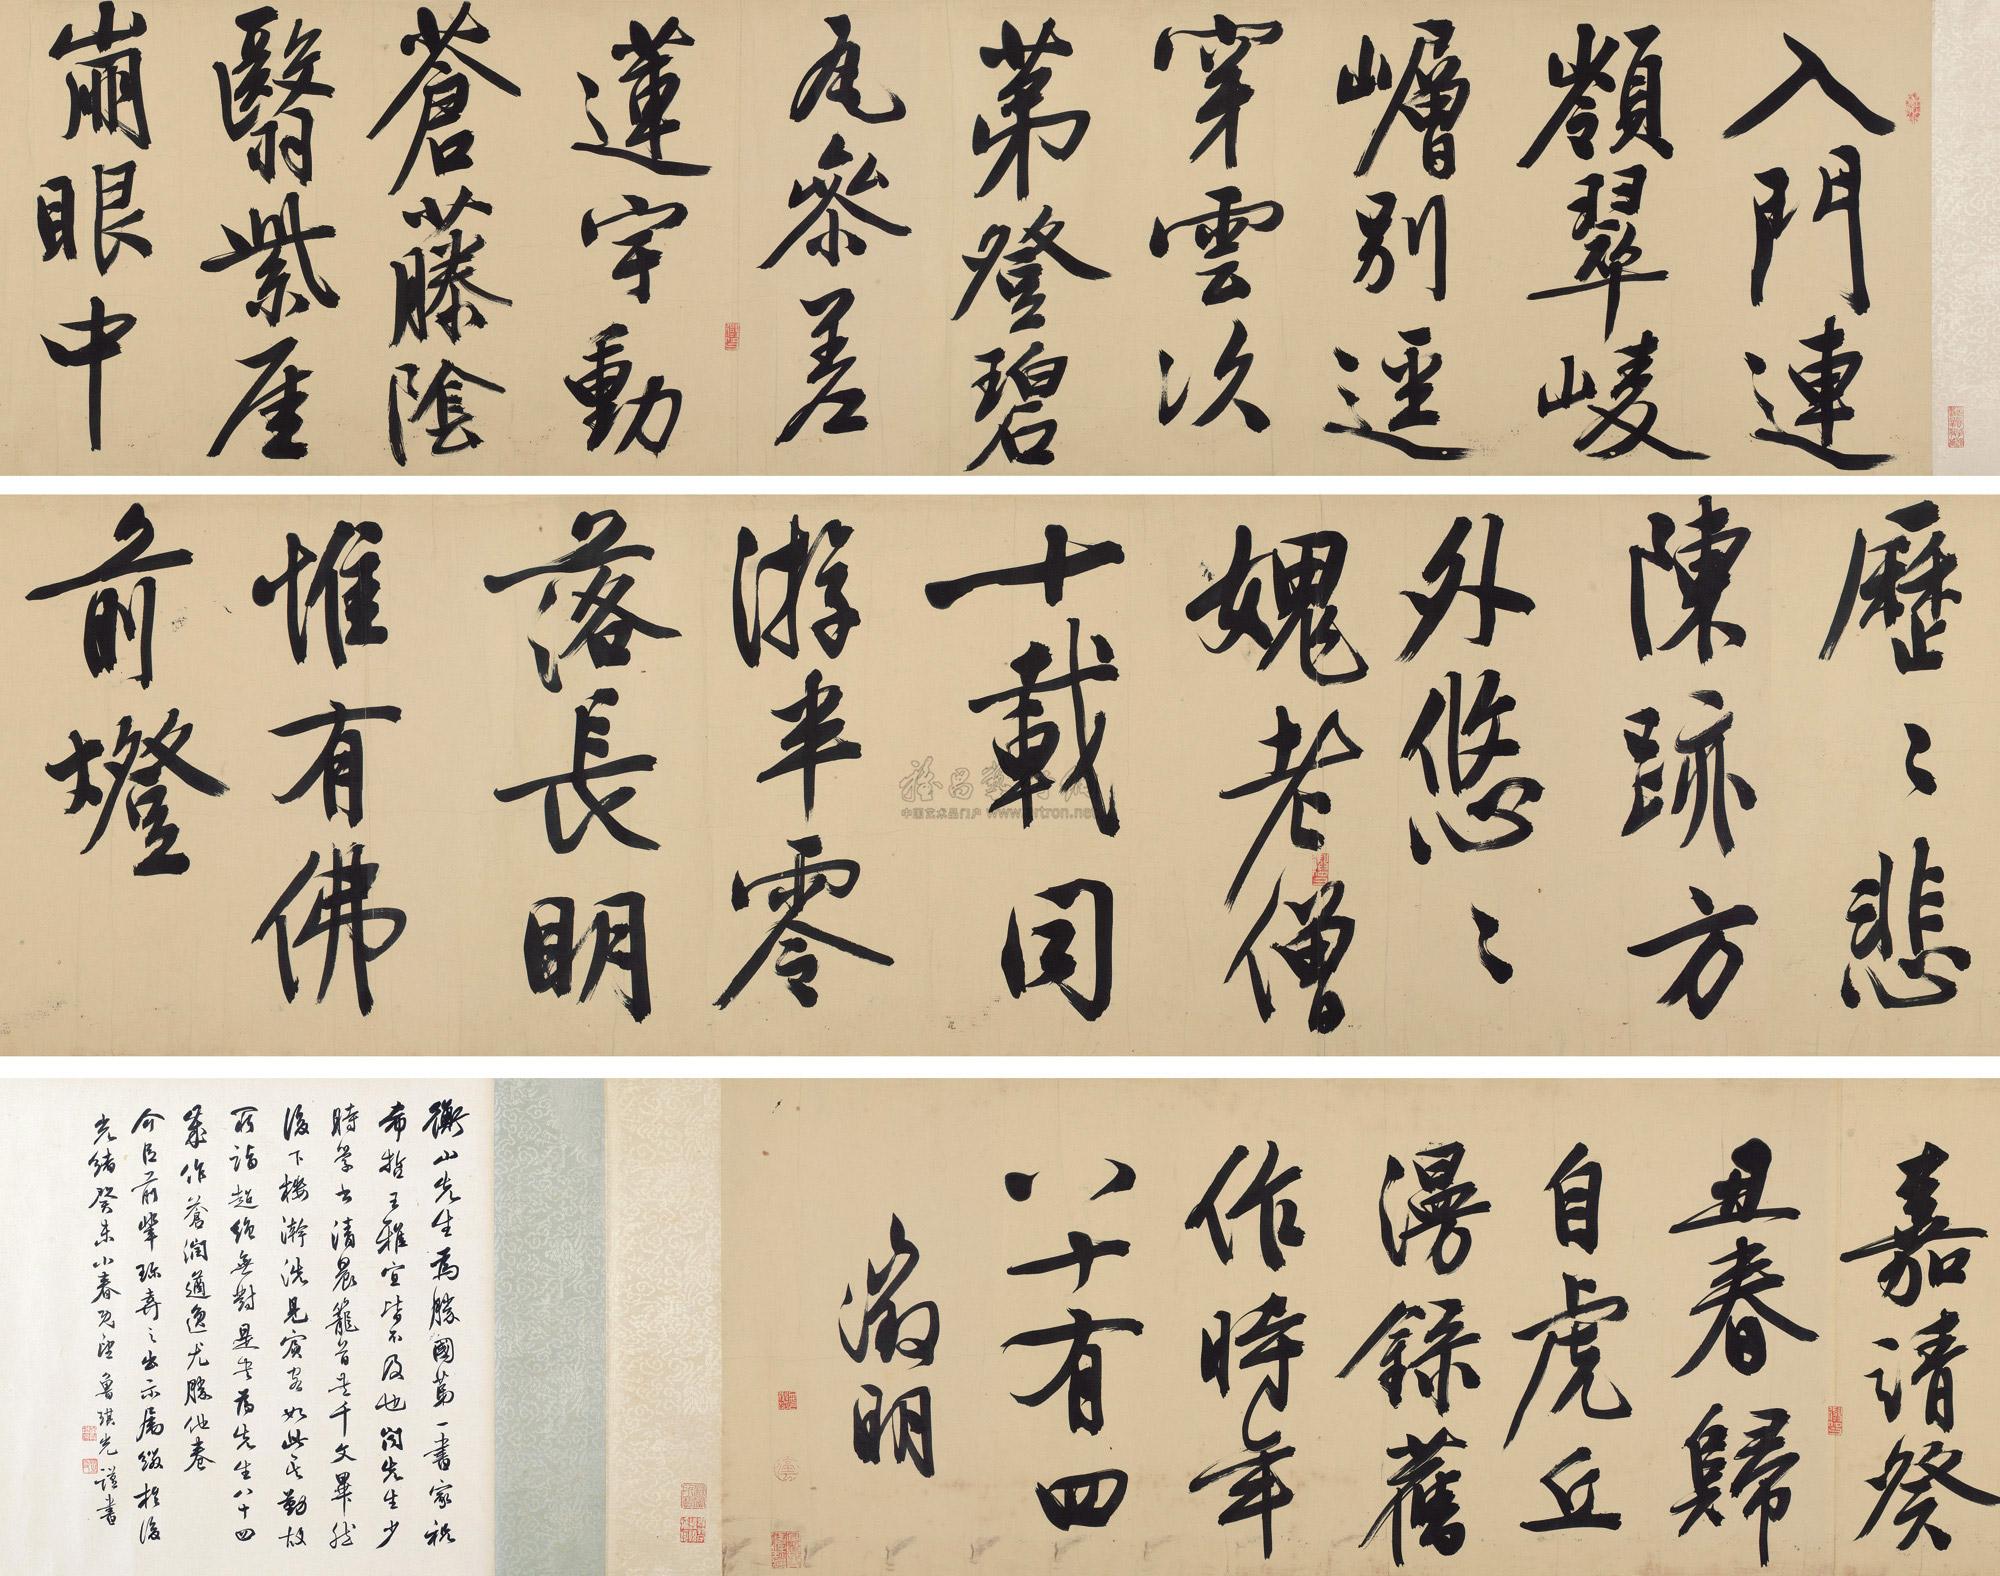 入門連
嶺翠崚
嶒別逕
穿雲次
第登碧
瓦參差
蓮宇動
蒼藤陰
翳紫厓
崩眼中
歷〻悲
陳跡方
外悠〻
媿老僧
十載同
游半零
落長明
惟有佛
前燈
嘉靖癸
丑春歸
自虎丘
漫錄舊
作時年
八十有四
徵明
衡山先生為勝國第一書家祝
希哲王雅宜皆不及也聞先生少
時學書清晨籠首千文畢然
後下樓澣洗見賓客如此其勤故
所詣超絕無對是卷為先生八十四
歲作蒼潤遒逸尤勝他卷
介臣前輩珎之出示屬綴於後
光緒癸未小春既望魯琪光謹書
中国艺术品门户 www.artron.net